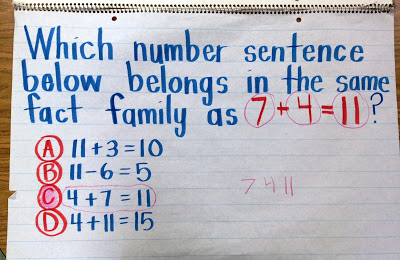 Which number sentence
below belongs in the same
fact family as 7+4=11?
A 11+3=10
B 11-6=5
C 4+7=11
7 4 11
D 4+11=15